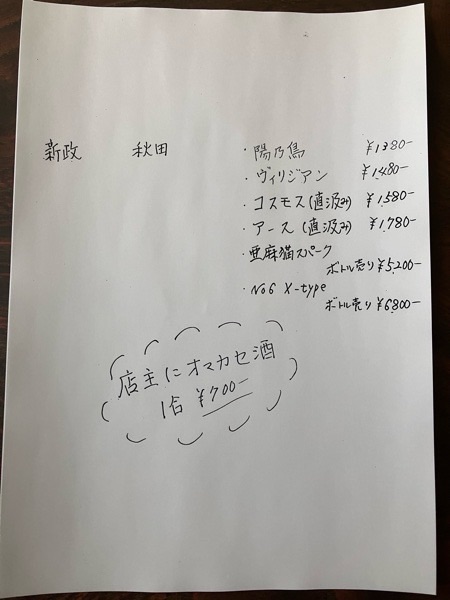 新政 秋田 ・陽乃鳥 ¥1,380-
・ヴィリジアン ¥1,480-
・コスモス(直汲み) ¥1,580-
・アース(直汲み) ¥1,780-
・亜麻猫スパーク
ボトル売り ¥5,200-
・No6 X-type
ボトル売り ¥6,800-
店主にオマカセ酒
1合 ¥700-